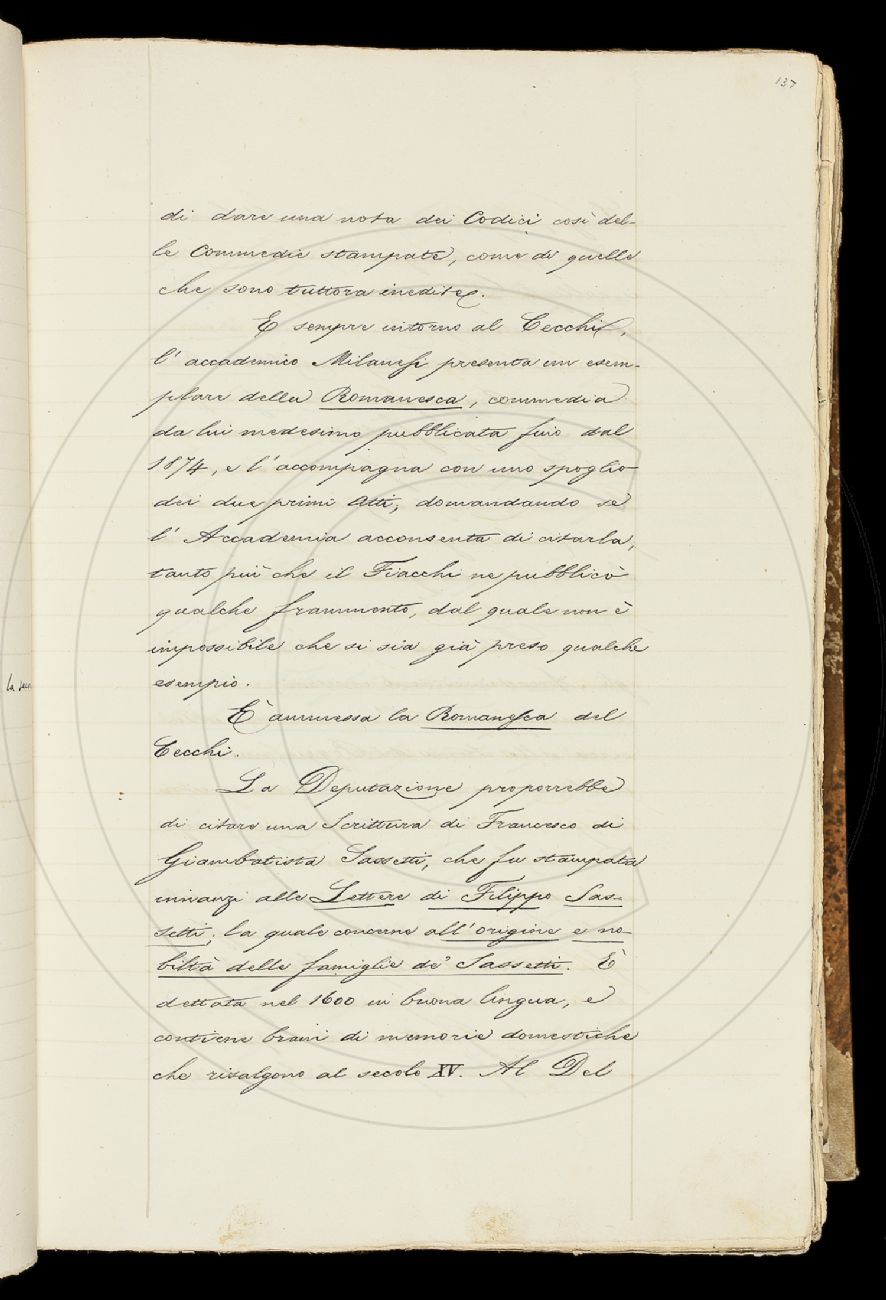 137
di dare una nota dei Codici così del-
le Commedie stampate, come di quelle
che sono tuttora inedite.
E sempre intorno al Cecchi,
l'accademico Milanesi presenta un esem-
plare della Romanesca, commedia
da lui medesimo pubblicata fino dal
1874, e l'accompagna con uno spoglio
dei due primi Atti, domandando se
l'Accademia acconsenta di citarla,
tanto più che il Fiacchi ne pubblicò
qualche frammento, dal quale non è
impossibile che si sia già preso qualche
esempio.
È ammessa la Romanesca del
Cecchi.
La Deputazione proporrebbe
di citare una Scrittura di Francesco di
Giambatista Sassetti, che fu stampata
innanzi alle Lettere di Filippo Sas-
setti, la quale concerne all'origine e no-
biltà delle famiglie de' Sassetti. È
dettata nel 1600 in buona lingua, e
contiene brani di memorie domestiche
che risalgono al secolo XV. Al Del